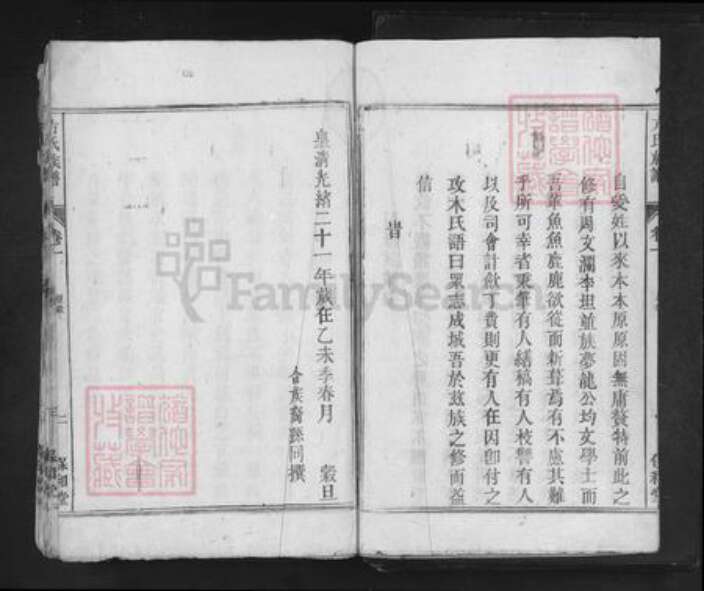 自受姓以來本本原原固無庸贅特前此之
修有周文瀾李坦並族夢龍公均文學士而
吾輩魚魚鹿鹿欲從而新葺焉有不慮其難
乎所可幸者秉筆有人繕稿有人校讐有人
以及司會計歛丁費則更有人在因卽付之
攻木氏語曰眾志成城吾於玆族之修而益
信
旹
皇清光緒二十一年歲在乙未季春月 穀旦
合族裔孫同撰
氏族譜
卷一
保和堂
FamilySearch